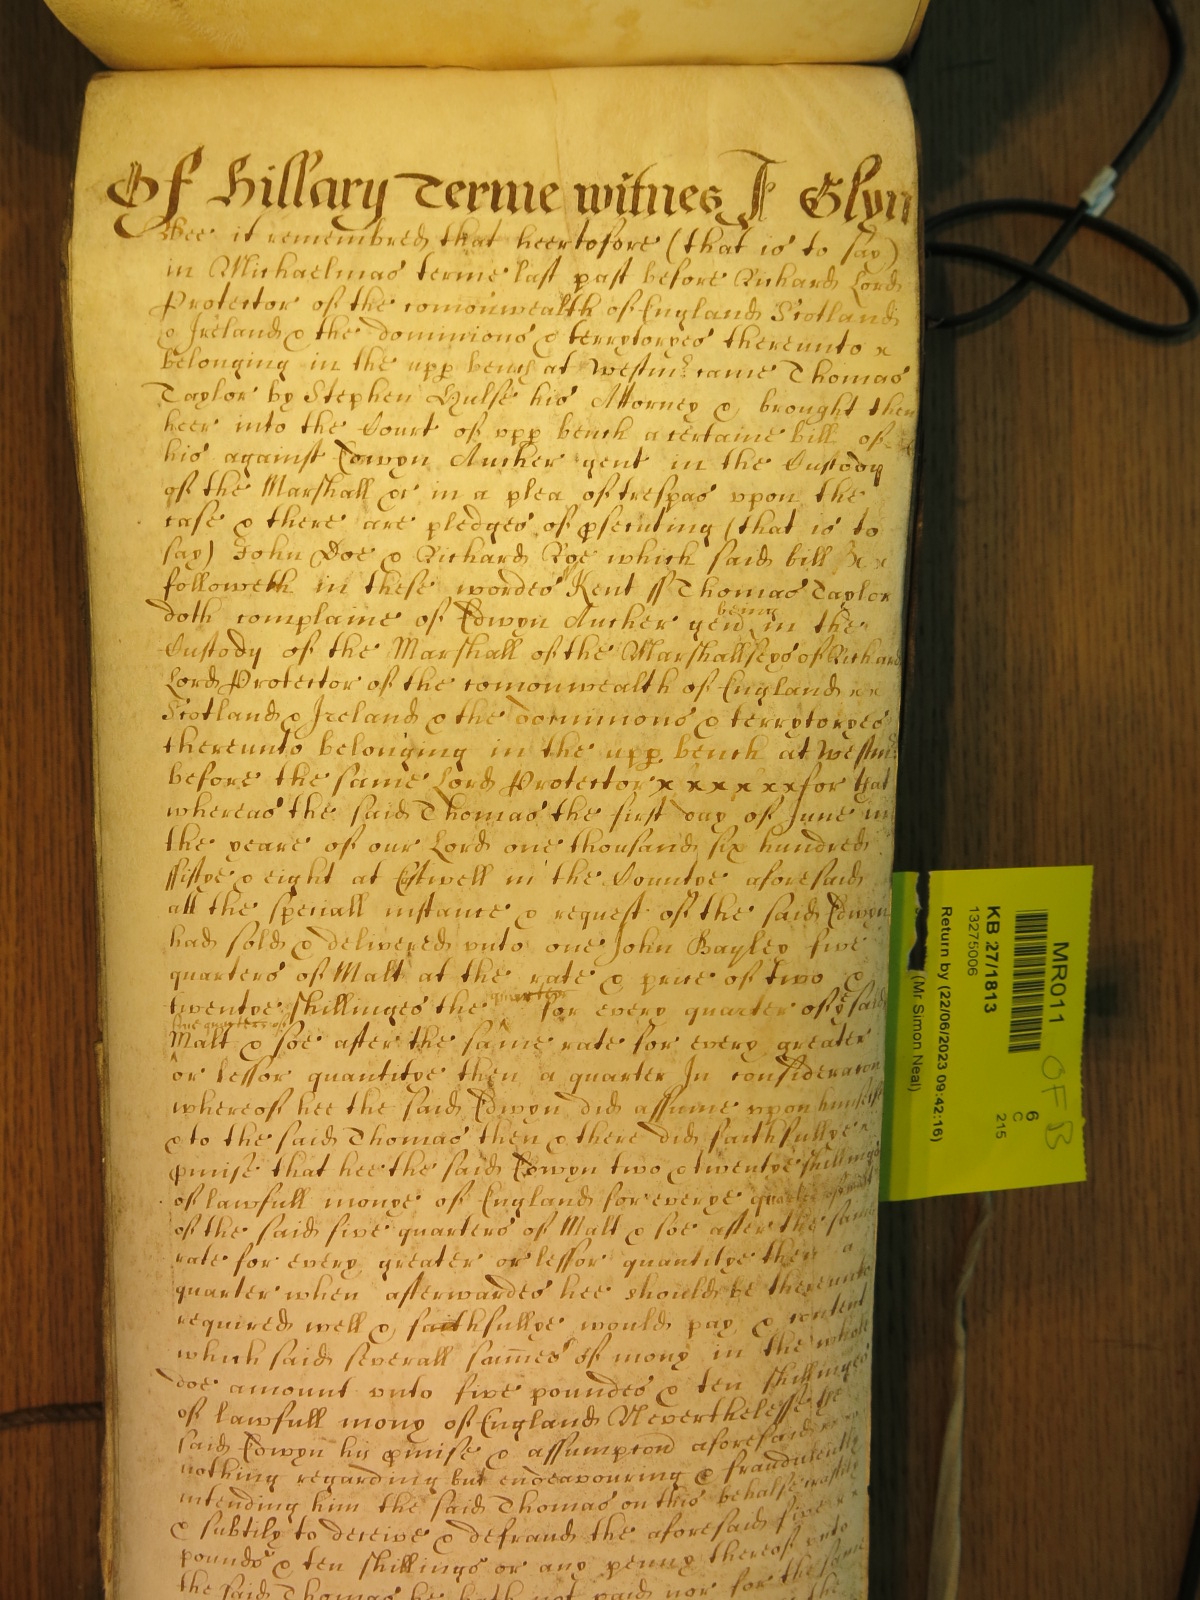 Of Hillary Terme witnes J Glyn
Bee it remembred that heertofore (that is to say)
in Michaelmas terme last past before Richard Lord
Protector of the comonwealth of England Scotland
& Ireland & the dominions & terrytoryes thereunto x
belonging in the upp bench at Westmr came Thomas
Taylor by Stephen Hulse his Attorney & brought then
heer into the Court of upp bench a certaine bill of
his against Edwyn Aucher gent in the Custody
of the Marshall &c in a plea of trespas upon the
case & there are pledges of psecuting (that is to
say) John Doe & Richard Roe which said bill x x
followeth in these wordes Kent ss Thomas Taylor
doth complaine of Edwyn Aucher gen being in the
Custody of the Marshall of the Marshallseys of Richard
Lord Protector of the comonwealth of England x x
Scotland & Ireland & the dominions & terrytoryes
thereunto belonging in the upp bench at Westmr
before the same Lord Protector x x x x x x for that
whereas the said Thomas the first day of June in
the yeare of our Lord one thousand six hundred
fiftye & eight at Estwell in the Countye aforesaid
att the speciall instance & request of the said Edwyn
had sold & delivered unto one John Bayley five
quarters of Malt at the rate & price of two &
twentye shillinges the quarter for every quarter of ye said
five quarters of
Malt & soe after the same rate for every greater
or lessor quantitye then a quarter In consideracon
whereof hee the said Edwyn did assume upon himselfe
& to the said Thomas then & there did faithfullye x
pmise that hee the said Edwyn two & twentye shillings
of lawfull monye of England for everye quarter of malt
of the said five quarters of Malt & soe after the same
rate for every greater or lessor quantitye then a
quarter when afterwardes hee should be thereunto
required well & faithfullye would pay & content
which said severall sumes of mony in the whole
doe amount unto five poundes & ten shillinges
of lawfull mony of England Neverthelesse the
said Edwyn his pmise & assumpcon aforesaid
nothing regarding but endeavouring & fraudulently
intending him the said Thomas on this behalfe craftily
& subtily to deceive & defraud the aforesaid five x x
pounds & ten shillings or any penny thereof unto
the said Thomas he hath not paid nor for the same
MR011
6
C
215
KB 27/1813
13275006
Return by (22/06/2023 09:42:16)
(Mr Simon Neal)
OFB